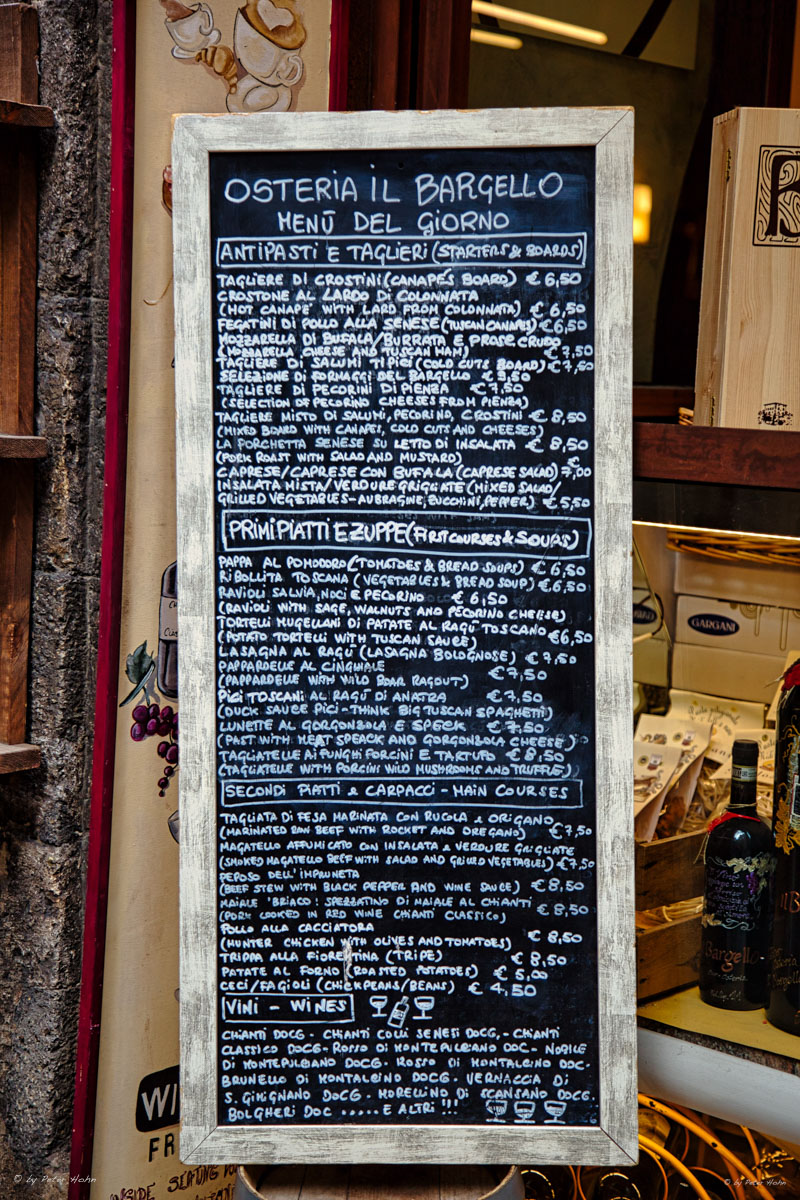 OSTERIA IL BARGELLO
MENÙ DEL GIORNO
ANTIPASTI E TAGLIERI (STARTERS & BOARDS)
TAGLIERE DI CROSTINI (CANAPÉS BOARD) € 6,50
CROSTONE AL LARDO DI COLONNATA
(HOT CANAPÉ WITH LARD FROM COLONNATA) € 6,50
FEGATINI DI POLLO ALLA SENESE (TUSCAN CANAPES) € 6,50
MOZZARELLA DI BUFALA/BURRATA E PROSC CRUDO
(MOZZARELLA CHEESE AND TUSCAN HAM) € 7,50
TAGLIERE DI SALUMI TIPICI (COLD CUTS BOARD) € 7,50
SELEZIONE DI FORMAGGI DEL BARGELLO € 9,50
TAGLIERE DI PECORINI DI PIENZA € 7,50
(SELECTION OF PECORINO CHEESES FROM PIENZA)
TAGLIERE MISTO DI SALUMI, PECORINO, CROSTINI € 8,50
(MIXED BOARD WITH CANAPES, COLD CUTS AND CHEESES)
LA PORCHETTA SENESE SU LETTO DI INSALATA € 8,50
(PORK ROAST WITH SALAD AND MUSTARD)
CAPRESE/CAPRESE CON BUFALA (CAPRESE SALAD) € 7,00
INSALATA MISTA/VERDURE GRIGLIATE (MIXED SALAD/
GRILLED VEGETABLES-AUBRAGINE, ZUCCHINI, PEPPER) € 5,50
PRIMI PIATTI E ZUPPE (FIRST COURSES & SOUPS)
PAPPA AL POMODORO (TOMATOES & BREAD SOUPS) € 6,50
RIBOLLITA TOSCANA (VEGETABLES & BREAD SOUP) € 6,50
RAVIOLI SALVIA, NOCI E PECORINO € 6,50
(RAVIOLI WITH SAGE, WALNUTS AND PECORINO CHEESE)
TORTELLI MUGELLANI DI PATATE AL RAGÙ TOSCANO
(POTATO TORTELLI WITH TUSCAN SAUCE) € 6,50
LASAGNA AL RAGÙ (LASAGNA BOLOGNOSE) € 7,50
PAPPARDELLE AL CINGHIALE
(PAPPARDELLE WITH WILD BOAR RAGOUT) € 7,50
PICI TOSCANI AL RAGÙ DI ANATRA € 7,50
(DUCK SAUCE PICI-THINK BIG TUSCAN SPAGHETTI)
LUNETTE AL GORGONZOLA E SPECK € 7,50
(PAST WITH MEAT SPEACK AND GORGONZOLA CHEESE)
TAGLIATELLE AI FUNGHI PORCINI E TARTUFO € 8,50
(TAGLIATELLE WITH PORCINI WILD MUSHROOMS AND TRUFFLE)
SECONDI PIATTI e CARPACCI - MAIN COURSES
TAGLIATA DI FESA MARINATA CON RUCOLA e ORIGANO
(MARINATED RAW BEEF WITH ROCKET AND OREGANO) € 7,50
MAGATELLO AFFUMICATO CON INSALATA e VERDURE GRIGLIATE
(SMOKED MAGATELLO BEEF WITH SALAD AND GRILLED VEGETABLES) € 7,50
PEPOSO DELL'IMPRUNETA
(BEEF STEW WITH BLACK PEPPER AND WINE SAUCE) € 8,50
MAIALE 'BRIACO: SPEZZATINO DI MAIALE AL CHIANTI
(PORK COOKED IN RED WINE CHIANTI CLASSICO) € 8,50
POLLO ALLA CACCIATORA
(HUNTER CHICKEN WITH OLIVES AND TOMATOES) € 8,50
TRIPPA ALLA FIORENTINA (TRIPE) € 8,50
PATATE AL FORNO (ROASTED POTATOES) € 5,00
CECI/FAGIOLI (CHICKPEANS/BEANS) € 4,50
VINI - WINES
CHIANTI DOCG - CHIANTI COLLI SENESI DOCG, - CHIANTI
CLASSICO DOCG - ROSSO DI MONTEPULCIANO DOC - NOBILE
DI MONTEPULCIANO DOCG - ROSSO DI MONTALCINO DOC -
BRUNELLO DI MONTALCINO DOCG - VERNACCIA DI
S. GIMIGNANO DOCG - MORELLINO DI SCANSANO DOCG.
BOLGHERI DOC ..... E ALTRI !!!
GARGANI
Bargello
WI
FR
INSIDE
© by Peter Hohn
© by Peter Hohn